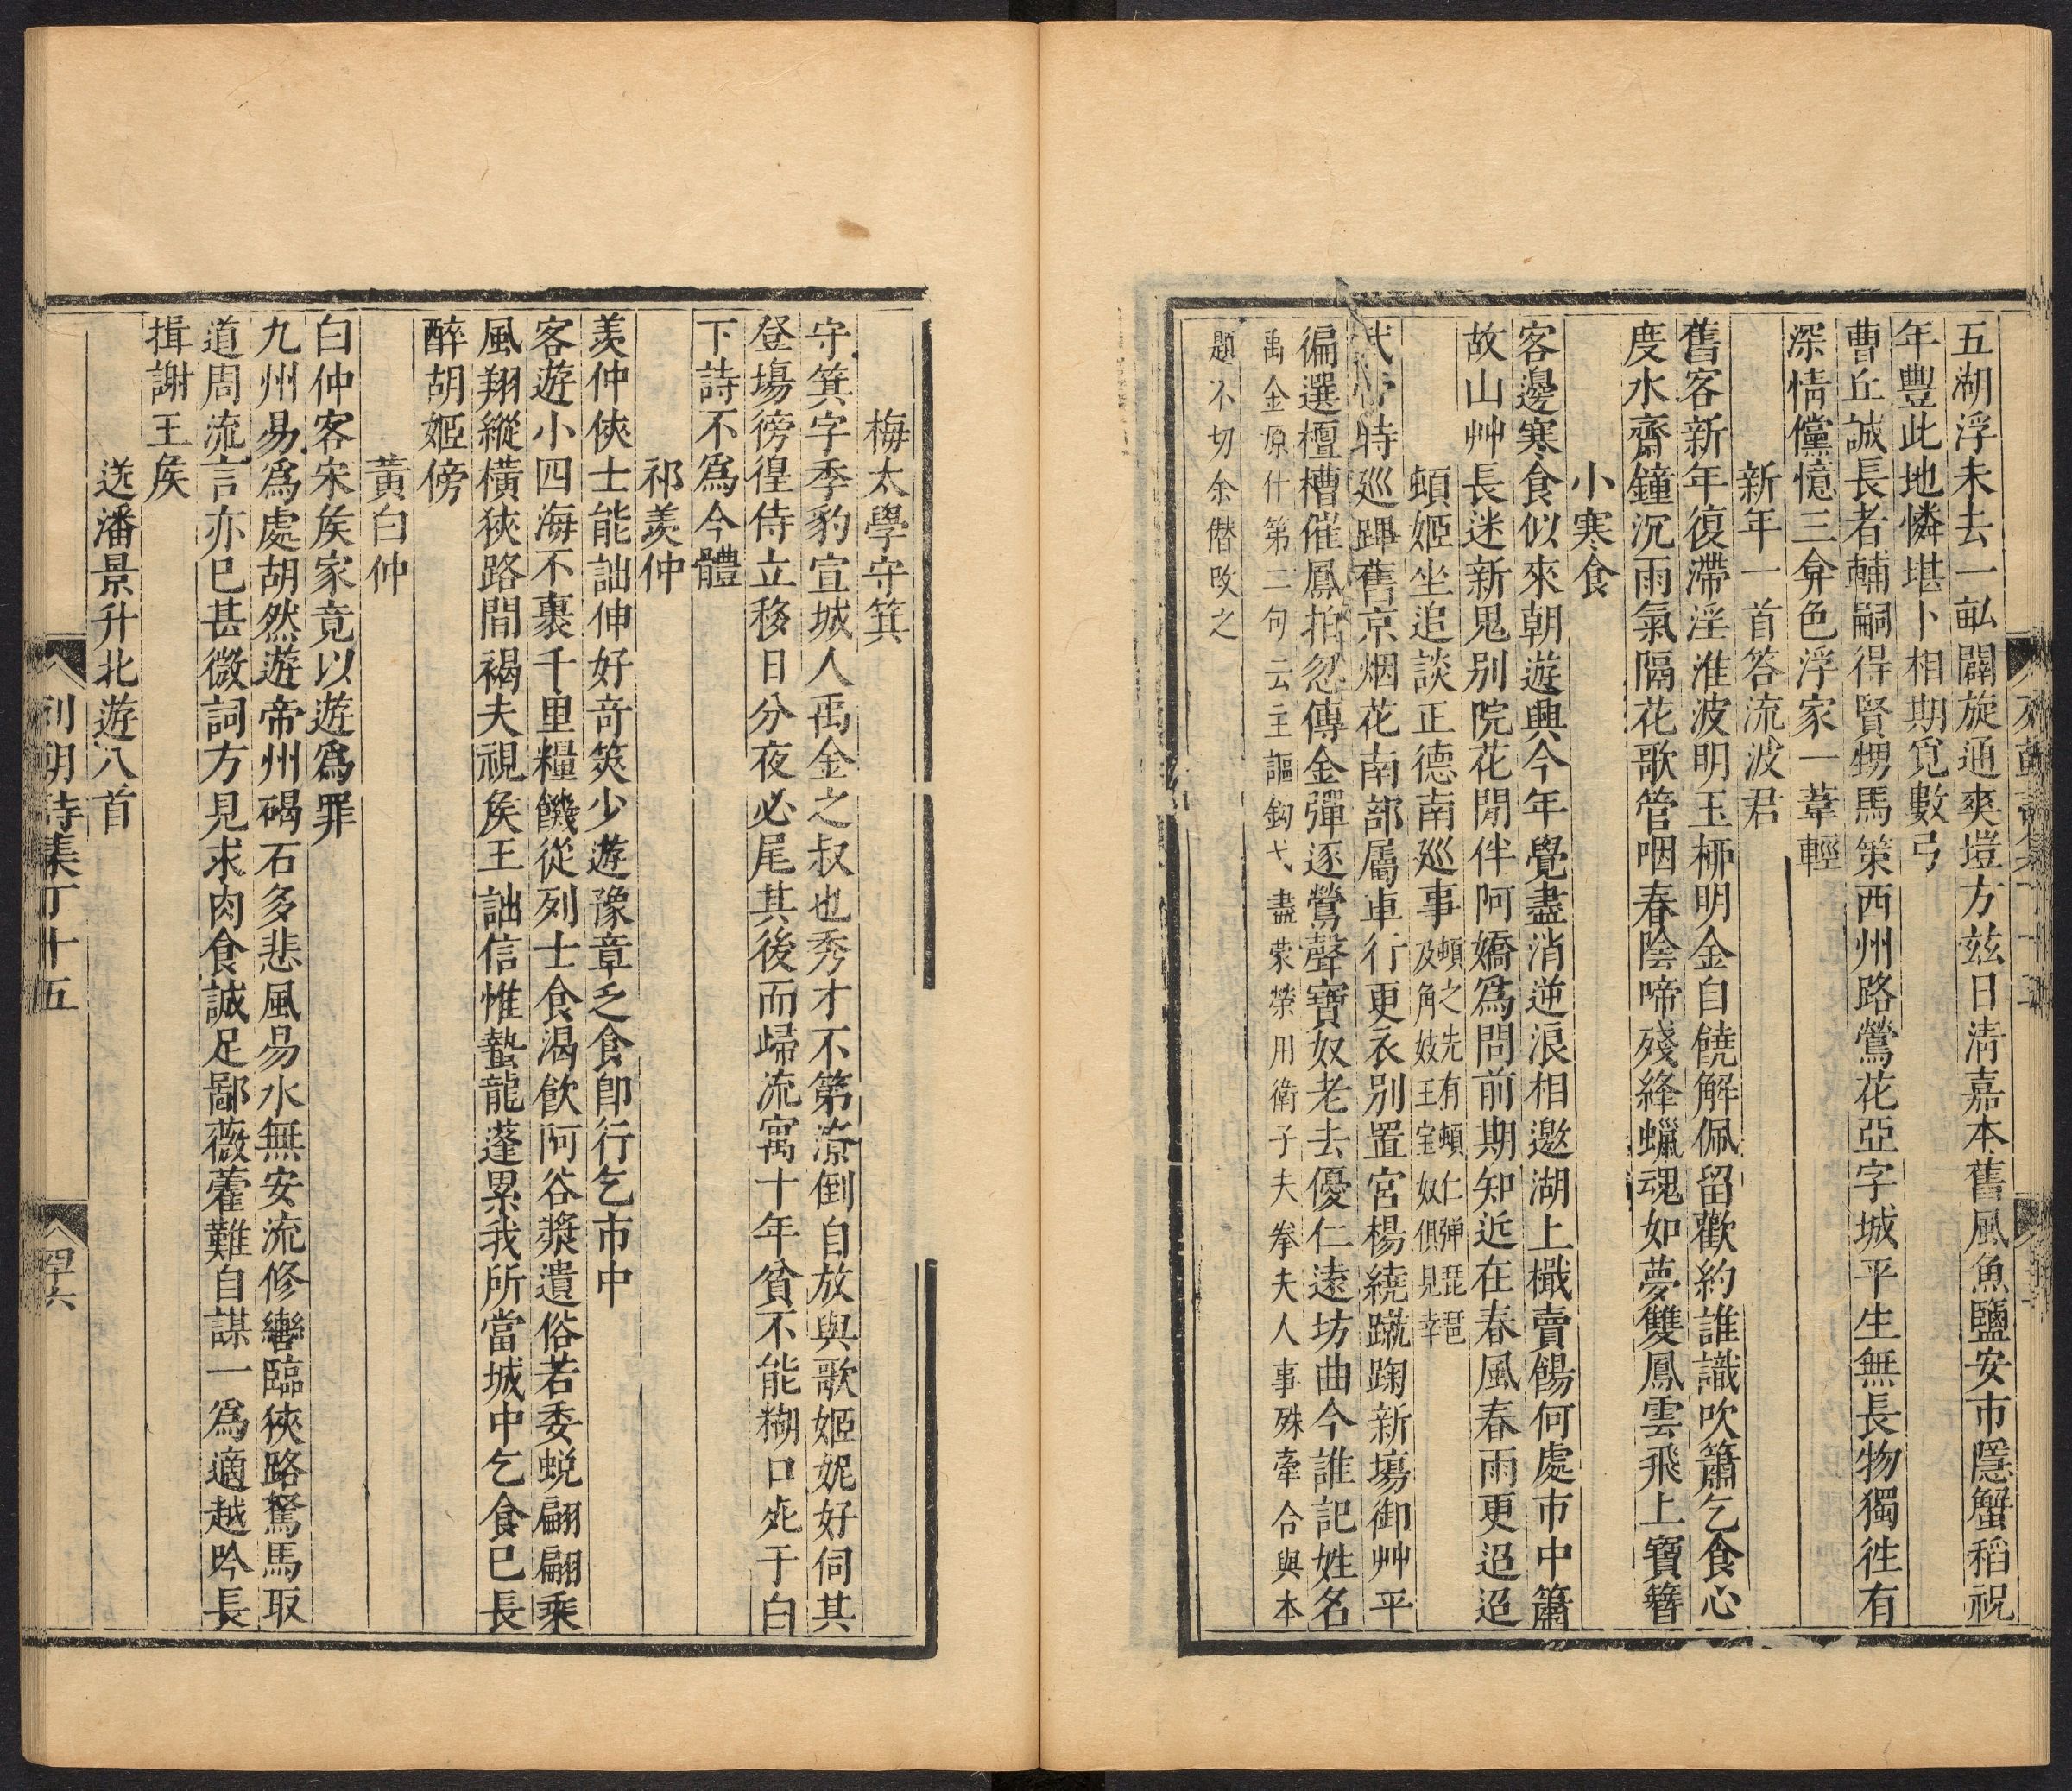 五湖浮未去一畝闢旋通爽塏方玆日淸嘉本舊風魚鹽安市隱蟹稻祝
年豐此地憐堪卜相期寬數弓
曹丘誠長者輔嗣得賢甥馬策西州路鶯花亞字城平生無長物獨徃有
深情儻憶三弇色浮家一葦輕
新年一首答流波君
舊客新年復滯淫淮波明玉桺明金自饒解佩留歡約誰識吹簫乞食心
度水齋鐘沉雨氣隔花歌管咽春陰啼殘絳蠟魂如夢雙鳳雲飛上寶簪
小寒食
客邊寒食似來朝遊興今年覺盡消逆浪相邀湖上檝賣餳何處市中簫
故山艸長迷新鬼别院花閒伴阿嬌爲問前期知近在春風春雨更迢迢
頓姬坐追談正德南巡事頓之先有頓仁彈琵琶及角妓王宝奴俱見幸
武時巡蹕舊京烟花南部屬車行更衣别置宮楊繞蹴踘新塲御艸平
徧選檀槽催鳳拍忽傳金彈逐鶯聲寶奴老去優仁遠坊曲今誰記姓名
禹金原什第二句云主謳鈎弋盡蒙榮用衛子夫拳夫人事殊牽合與本
題不切余僭改之
梅太學守箕
守箕字季豹宣城人禹金之叔也秀才不第潦倒自放與歌姬妮好伺其
登塲徬徨侍立移日分夜必尾其後而歸流寓十年貧不能糊口死于白
下詩不爲今體
祁羡仲
羡仲俠士能詘伸好竒筴少遊豫章乏食卽行乞市中
客遊小四海不裹千里糧饑從列士食渴飮阿谷漿遺俗若委蛻翩翩乘
風翔縱橫狹路間褐夫視矦王詘信惟蟄龍蓬累我所當城中乞食巳長
醉胡姬傍
黃白仲
白仲客宋矦家竟以遊爲罪
九州易爲處胡然遊帝州碣石多悲風易水無安流修轡臨狹路駑馬取
道周流言亦巳甚微詞方見求肉食誠足鄙薇藿難自謀一爲適越吟長
揖謝王矦
送潘景升北遊八首
列朝詩集丁十五
四十六